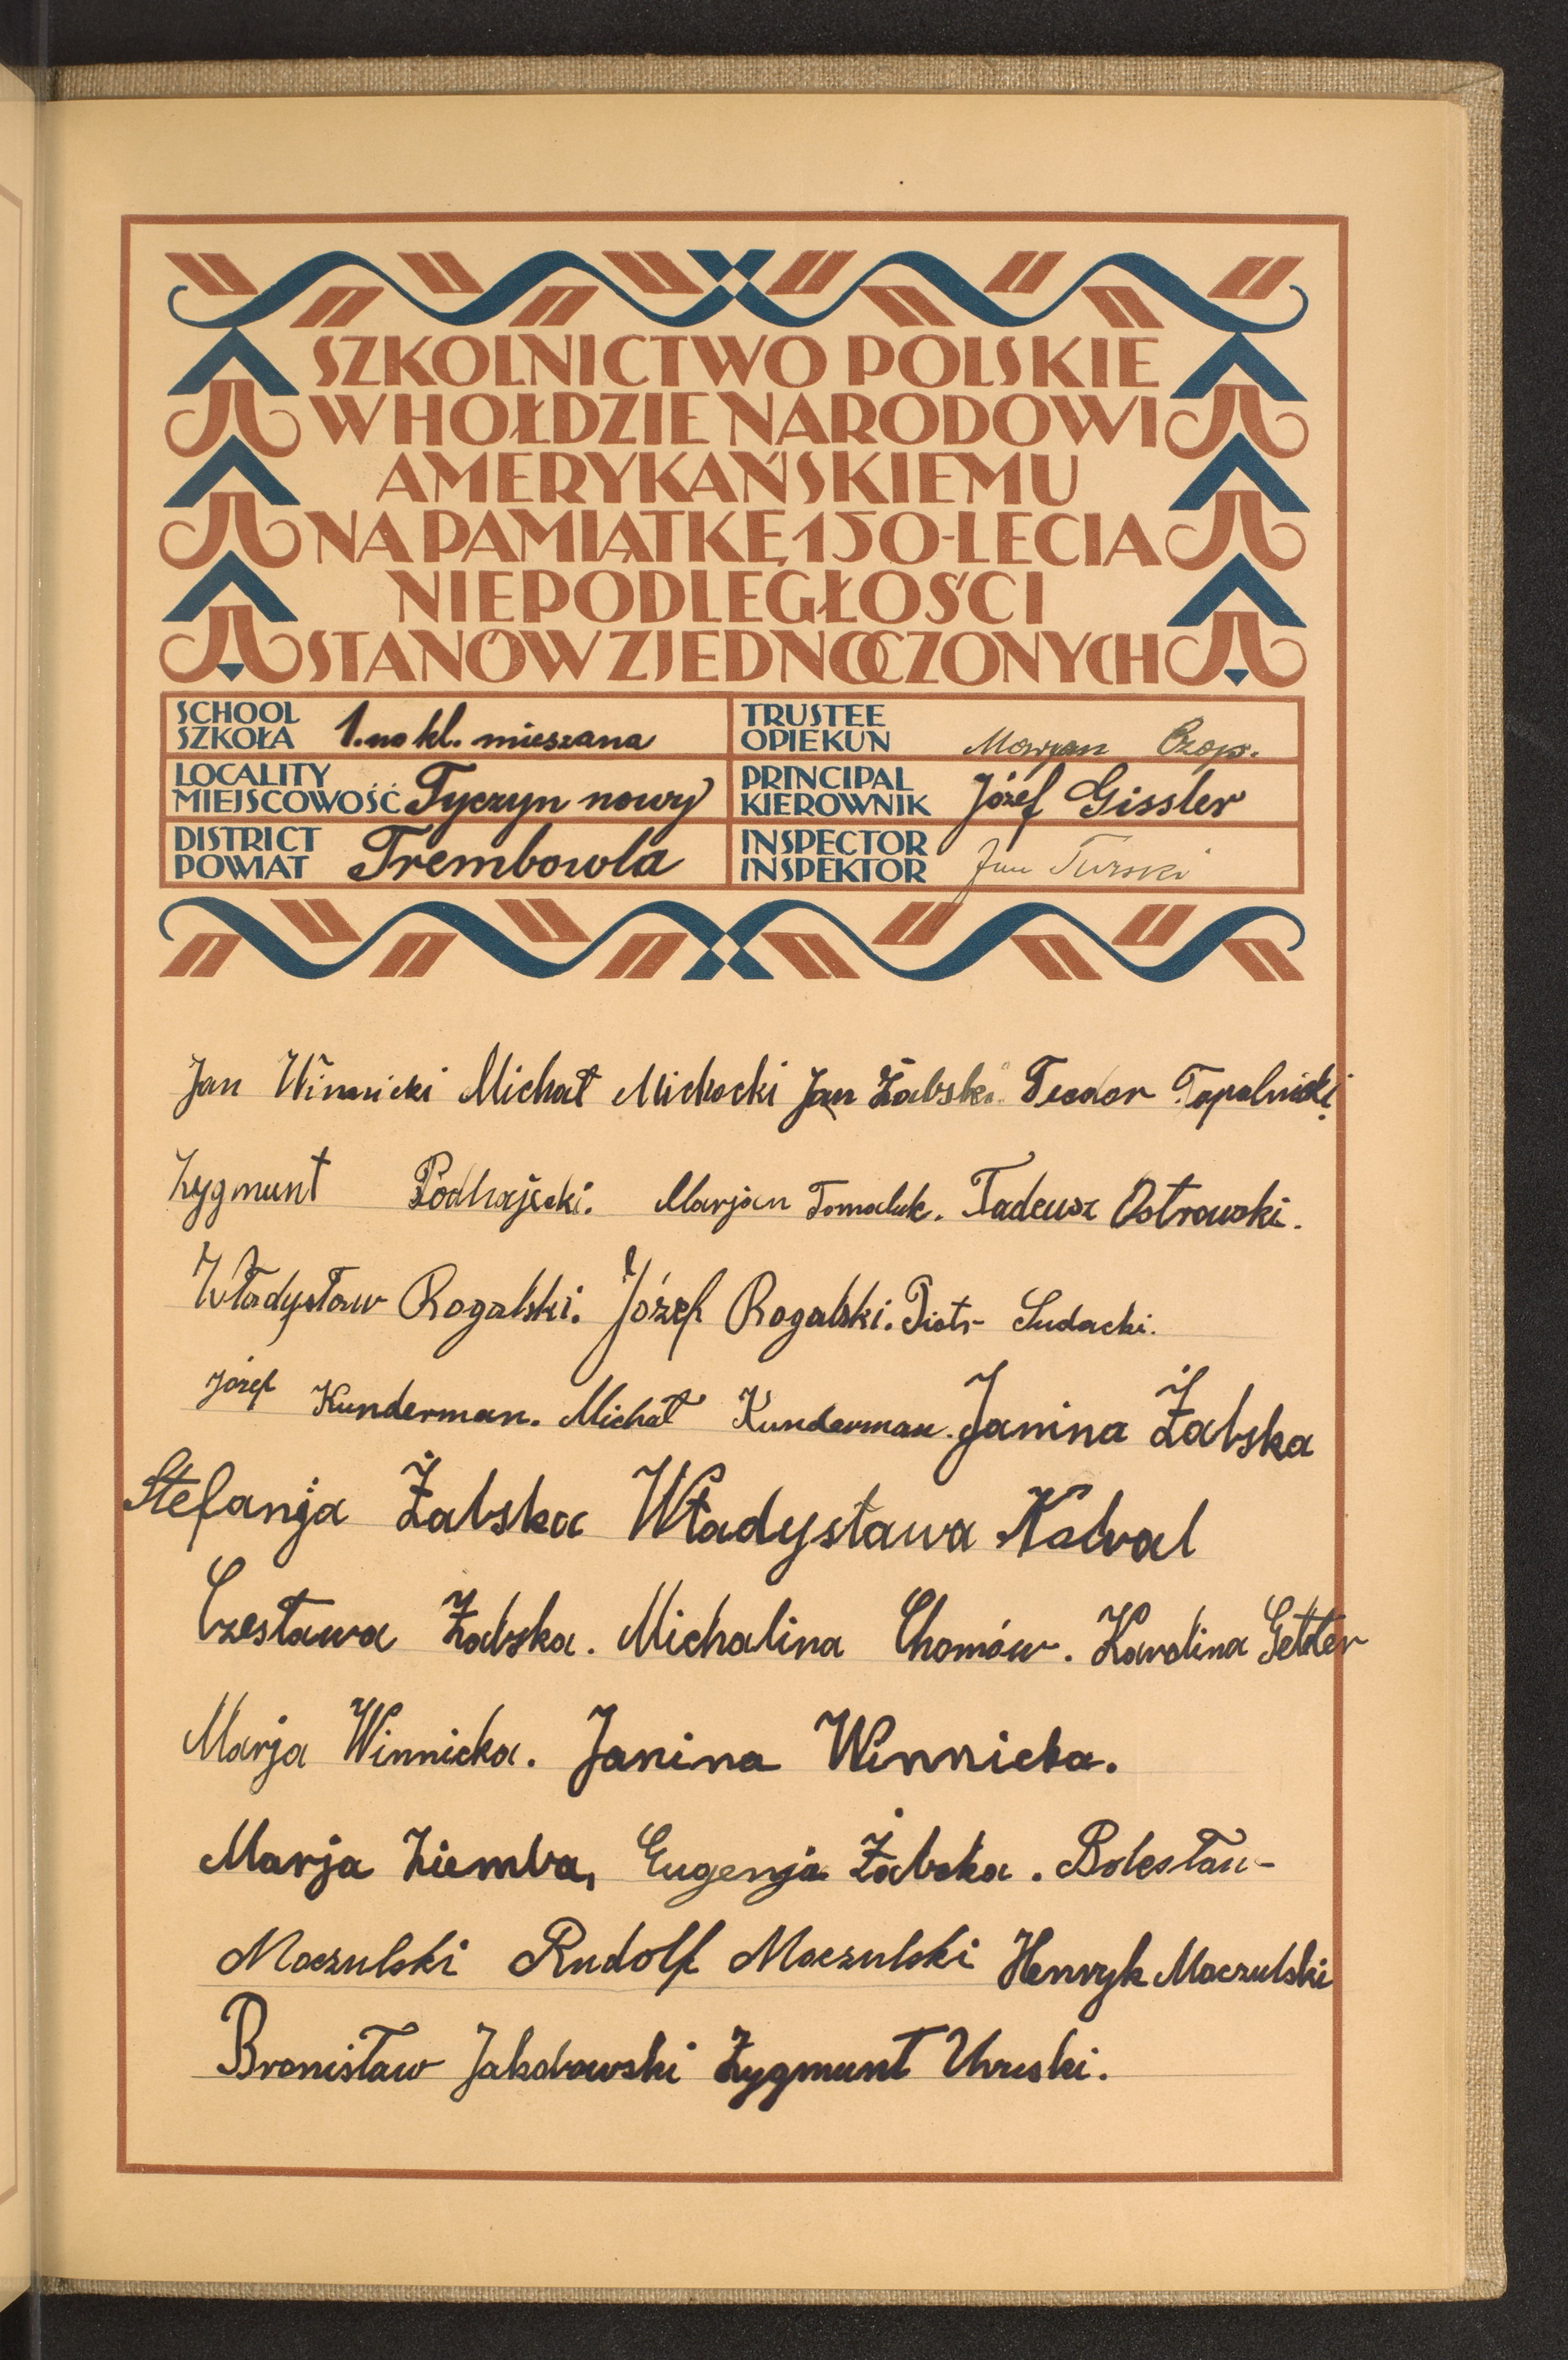 SZKOLNICTWO POLSKIE
W HOŁDZIE NARODOWI
AMERYKAŃSKIEMU
NA PAMIĄTKĘ 150-LECIA
NIEPODLEGŁOŚCI
STANÓW ZJEDNOCZONYCH
SCHOOL
SZKOŁA 1.no kl. mieszana
TRUSTEE
OPIEKUN Maryan Czop.
LOCALITY
MIEJSCOWOŚĆ Tyczyn nowy
PRINCIPAL
KIEROWNIK Józef Gissler
DISTRICT
POWIAT Trembowla
INSPECTOR
INSPEKTOR Jan Turski
Jan Winnicki Michał Michocki Jan Żabski Teodor Topolnicki
Zygmunt Podhajecki. Marjan Tomaluk. Tadeusz Ostrowski.
Władysław Rogalski. Józef Rogalski. Piotr Sudacki.
Józef Kunderman. Michał Kunderman. Janina Żabska
Stefanja Żabska Władysława
Czesława Żabska. Michalina Chomów. Karolina Getter
Marja Winnicka. Janina Winnicka.
Marja Ziemba, Eugenja Żabska. Bolesław
Moczulski Rudolf Moczulski Henryk Moczulski
Bronisław Jakobowski Zygmunt Uhruski.